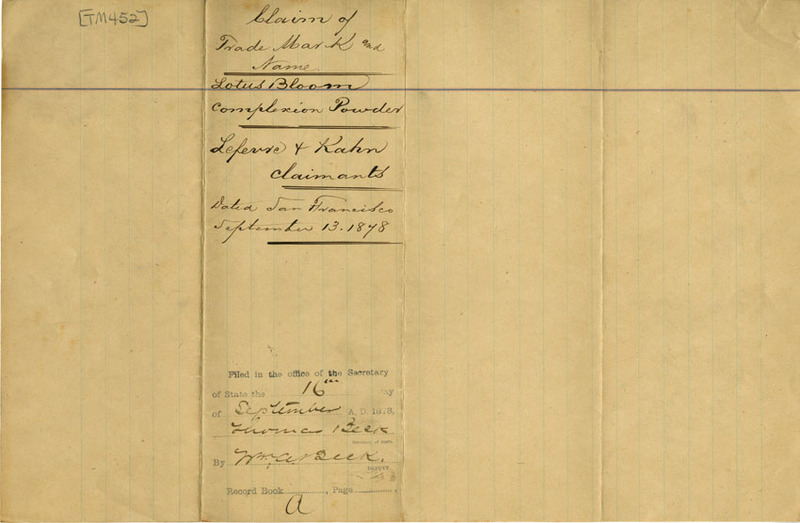 [TM452]
Claim of
Trade Mark and
Name
Lotus Bloom
Complexion Powder
Lefevre & Kahn
Claimants
Dated San Francisco
September 13. 1878
Filed in the office of the Secretary
of State the 16th day
of September A. D. 1878,
Thomas Beck
Secretary of State.
By Wm. A. Beck.
DEPUTY.
Record Book , Page
A